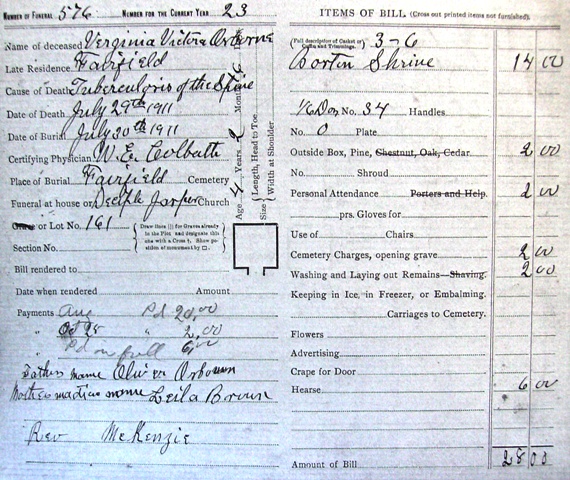 NUMBER OF FUNERAL 576 NUMBER FOR THE CURRENT YEAR 23
Name of deceased Virginia Victoria Osborne
Late Residence Fairfield
Cause of Death Tuberculosis of the Spine
Date of Death July 29th 1911
Date of Burial July 30th 1911
Certifying Physician W. E.
Place of Burial Fairfield Cemetery
Funeral at house or Church
Grave or Lot No. 161
Draw lines [|] for Graves already in the Plot and designate this one with a Cross †. Show position of monument by □.
Section No.
Age 4 Years 2 Months 6
Length, Head to Toe
Size Width at Shoulder
Bill rendered to
Date when rendered Amount
Payments Aug Pd 20.00
" Oct 28 " 2.00
" Pd in full 6.00
Fathers name Oliver Osbourn
Mothers maiden name Leila Brown
Rev McKenzie
ITEMS OF BILL (Cross out printed items not furnished).
(Full description of Casket or Coffin and Trimmings.) 3-6
Shrine 14 00
1/6 Doz No. 34 Handles
No. 0 Plate
Outside Box, Pine, Chestnut, Oak, Cedar. 2 00
No. Shroud
Personal Attendance Porters and Help. 2 00
prs. Gloves for
Use of Chairs
Cemetery Charges, opening grave 2 00
Washing and Laying out Remains—Shaving. 2 00
Keeping in Ice, in Freezer, or Embalming.
Carriages to Cemetery.
Flowers
Advertising.
Crape for Door
Hearse 6 00
Amount of Bill 28 00